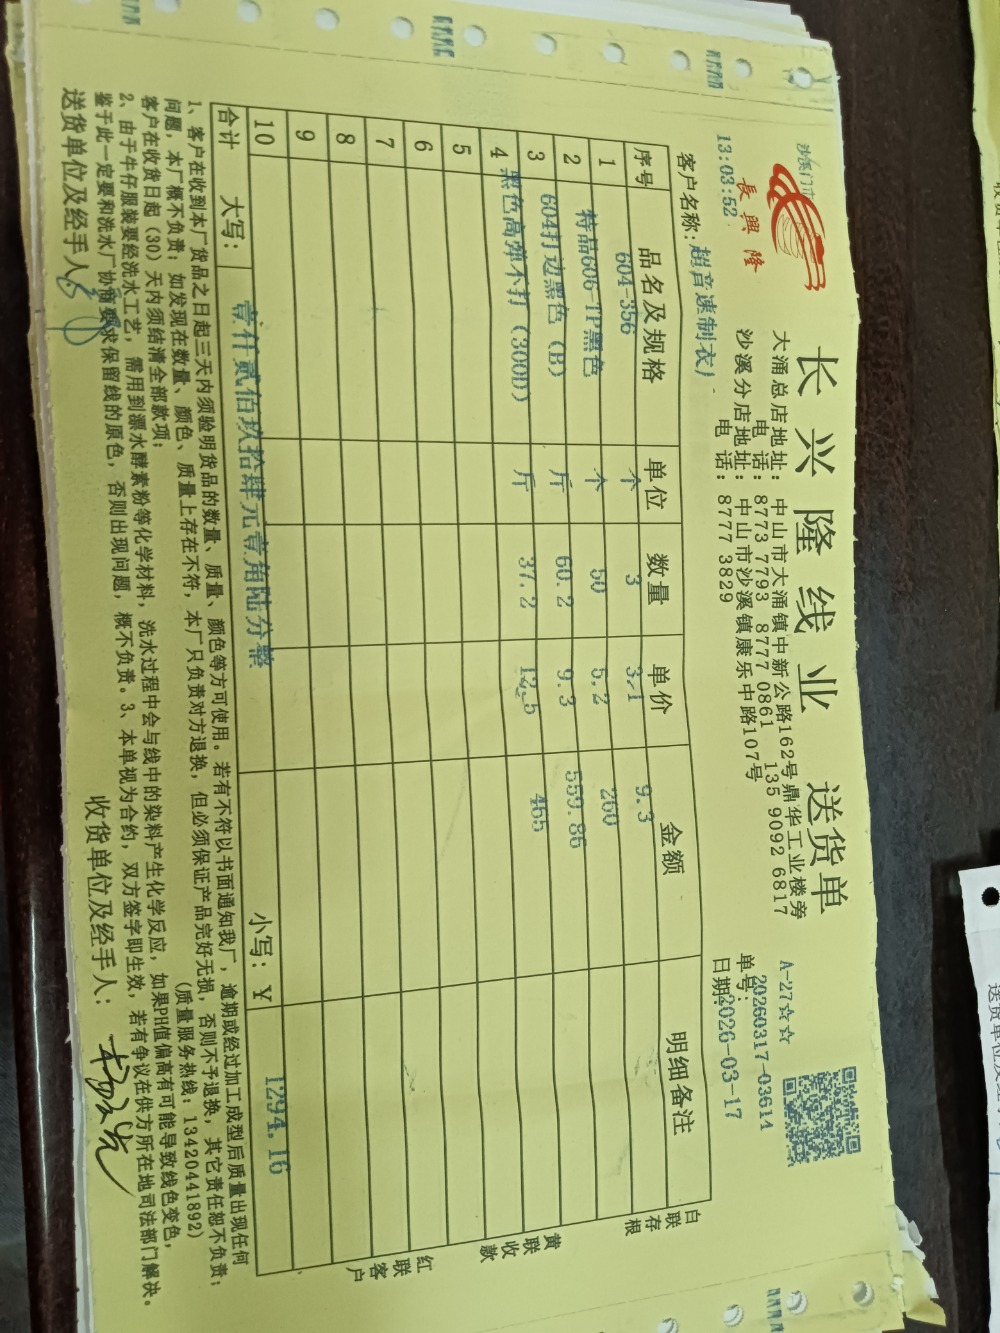 沙溪门市
長興隆
13:03:52
长兴隆线业 送货单
大涌总店地址: 中山市大涌镇中新公路162号鼎华工业楼旁
电 话: 8773 7793 8777 0861 135 9092 6817
沙溪分店地址: 中山市沙溪镇康乐中路107号
电 话: 8777 3829
A-27☆☆
单号: 20260317-03614
日期: 2026-03-17
客户名称: 超音速制衣厂
序号 品名及规格 单位 数量 单价 金额 明细备注
1 604-356 个 3 3.1 9.3
2 特品606-TP黑色 个 50 5.2 260
3 604打边黑色（B） 斤 60.2 9.3 559.86
4 黑色高弹不打（300D） 斤 37.2 12.5 465
5
6
7
8
9
10
合计 大写: 壹仟贰佰玖拾肆元壹角陆分整 小写: ¥ 1294.16
白联存根
黄联收款
红联客户
1、客户在收到本厂货品之日起三天内须验明货品的数量、质量、颜色等方可使用。若有不符以书面通知我厂，逾期或经过加工成型后质量出现任何
问题，本厂概不负责；如发现在数量、颜色、质量上存在不符，本厂只负责对方退换，但必须保证产品完好无损，否则不予退换，其它责任恕不负责；
客户在收货日起（30）天内须结清全部款项； （质量服务热线：13420441892）
2、由于牛仔服装要经洗水工艺，需用到漂水酵素粉等化学材料，洗水过程中会与线中的染料产生化学反应，如果PH值偏高有可能导致线色变色，
鉴于此一定要和洗水厂协商要求保留线的原色，否则出现问题，概不负责。3、本单视为合约，双方签字即生效，若有争议在供方所在地司法部门解决。
送货单位及经手人: 收货单位及经手人: